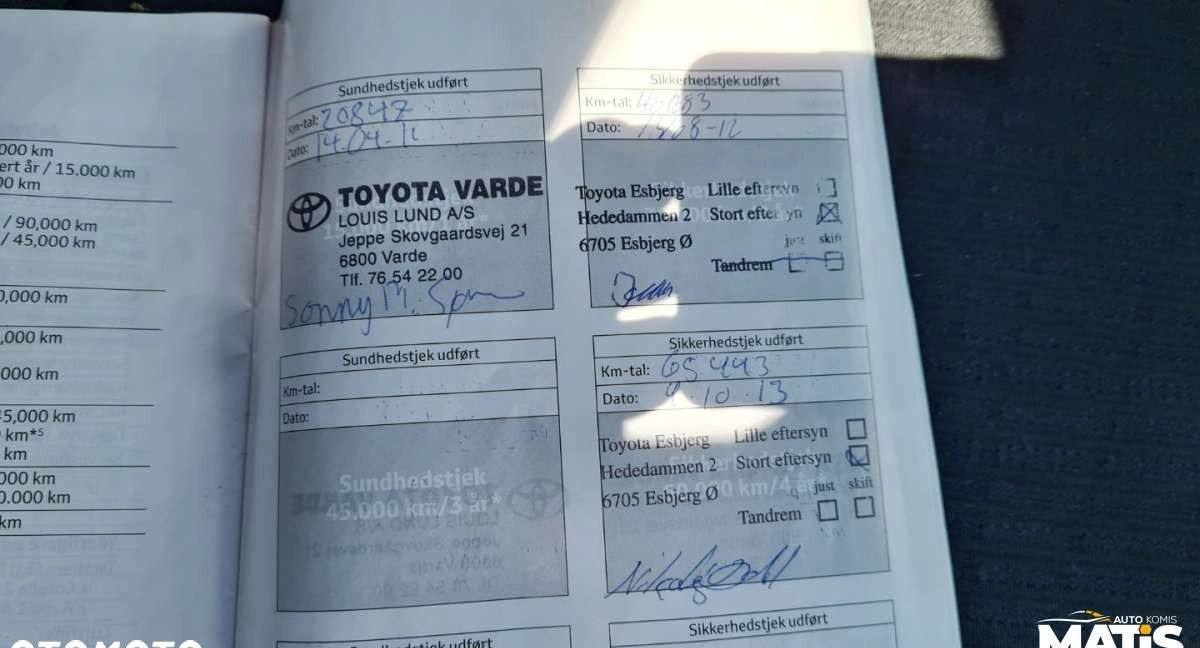 000 km
ert år / 15.000 km
00 km
/ 90,000 km
/ 45,000 km
0,000 km
,000 km
000 km
45,000 km
km*5
km
000 km
0.000 km
km
Sundhedstjek udført
Km-tal: 20847
Dato: 14.04.11
TOYOTA VARDE
LOUIS LUND A/S
Jeppe Skovgaardsvej 21
6800 Varde
Tlf. 76 54 22 00
Sonny M.
Sikkerhedstjek udført
Km-tal:
Dato:
Toyota Esbjerg Lille eftersyn
Hededammen 2 Stort eftersyn
6705 Esbjerg Ø just skift
Tandrem
Sundhedstjek udført
Km-tal:
Dato:
Sundhedstjek
45.000 km/3 år*
Sikkerhedstjek udført
Km-tal: 65443
Dato: 9.10.13
Toyota Esbjerg Lille eftersyn
Hededammen 2 Stort eftersyn
60.000 km/4 år*
6705 Esbjerg Ø just skift
Tandrem
Sundhedstjek udført
Sikkerhedstjek udført
OTOMOTO
AUTO KOMIS
MATIS